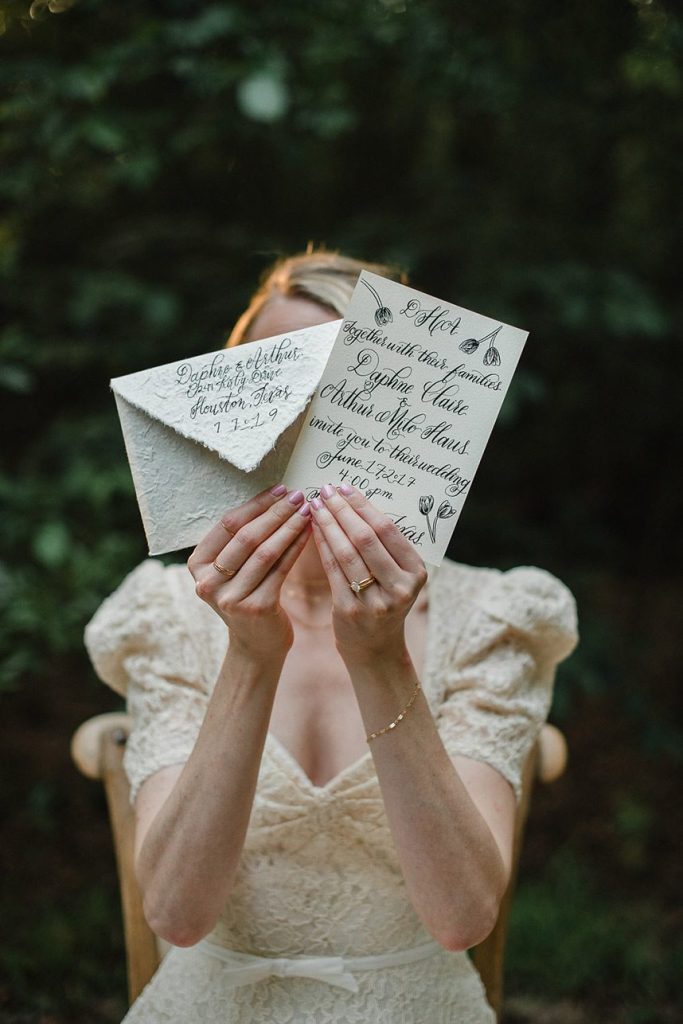 Daphne & Arthur
Houston, Texas
77019
D H A
Together with their families
Daphne Claire
&
Arthur Milo Haus
invite you to their wedding
June 17, 2017
4:00 pm
Texas